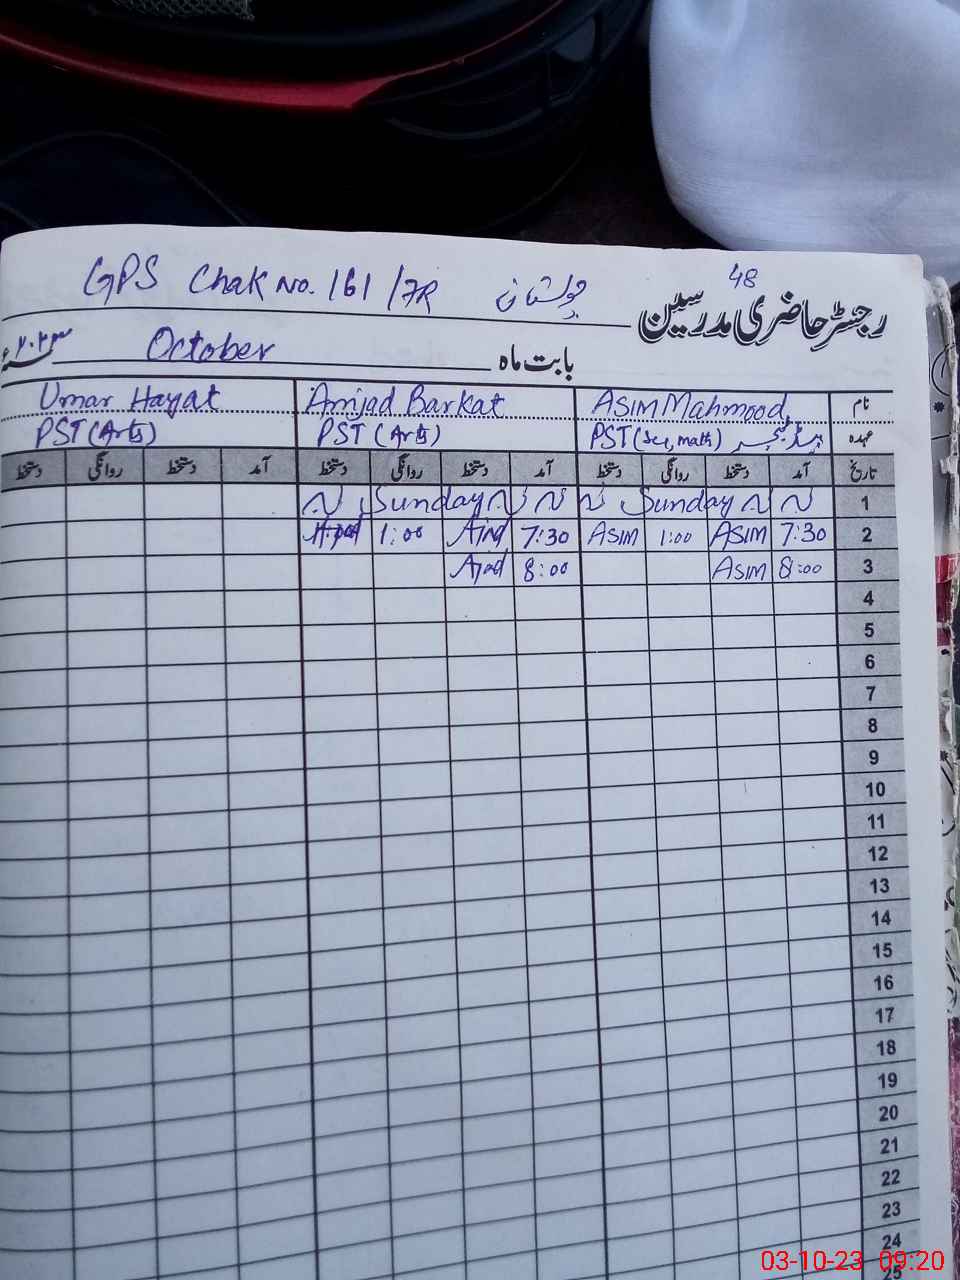 48
GPS Chak No. 161/7R چولستان
رجسٹر حاضری مدرسین
بابت ماہ October ۲۰۲۳ء
نام Asim Mahmood Amjad Barkat Umar Hayat
عہدہ PST (Sci, math) ہیڈ ٹیچر PST (Arts) PST (Arts)
تاریخ آمد دستخط روانگی دستخط آمد دستخط روانگی دستخط آمد دستخط روانگی دستخط
1 Sunday Sunday
2 7:30 Asim 1:00 Asim 7:30 Ajad 1:00 Ajad
3 8:00 Asim 8:00 Ajad
4
5
6
7
8
9
10
11
12
13
14
15
16
17
18
19
20
21
22
23
24
25
03-10-23 09:20